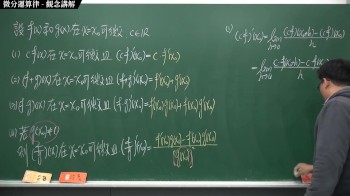 微分運算律 - 觀念講解
設 f(x) 和 g(x) 在 x=x₀ 可微 c∈ℝ
(1) cf(x) 在 x=x₀ 可微 且 (cf)'(x₀) = c f'(x₀)
(2) (f+g)(x) 在 x=x₀ 可微 且 (f+g)'(x₀) = f'(x₀)+g'(x₀)
(3) (f·g)(x) 在 x=x₀ 可微 且 (f·g)'(x₀) = f'(x₀)g(x₀)+f(x₀)g'(x₀)
(4) 若 g(x₀)≠0
則 (f/g)(x) 在 x=x₀ 可微 且 (f/g)'(x₀) = (f'(x₀)g(x₀)-f(x₀)g'(x₀))/[g(x₀)]²
(1) (cf)'(x₀) = lim h→0 ((cf)(x₀+h)-(cf)(x₀))/h
= lim h→0 (c·f(x₀+h)-c·f(x₀))/h